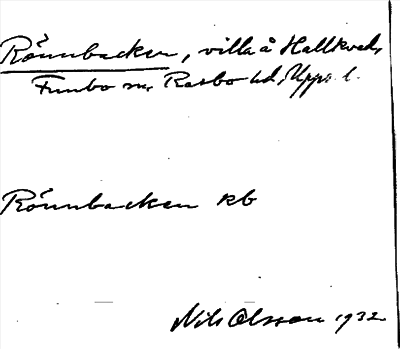 Rönnbacken, villa å Hallkved,
Funbo sn, Rasbo hd, Upps. l.
Rönnbacken rb
Nils Olsson 1932